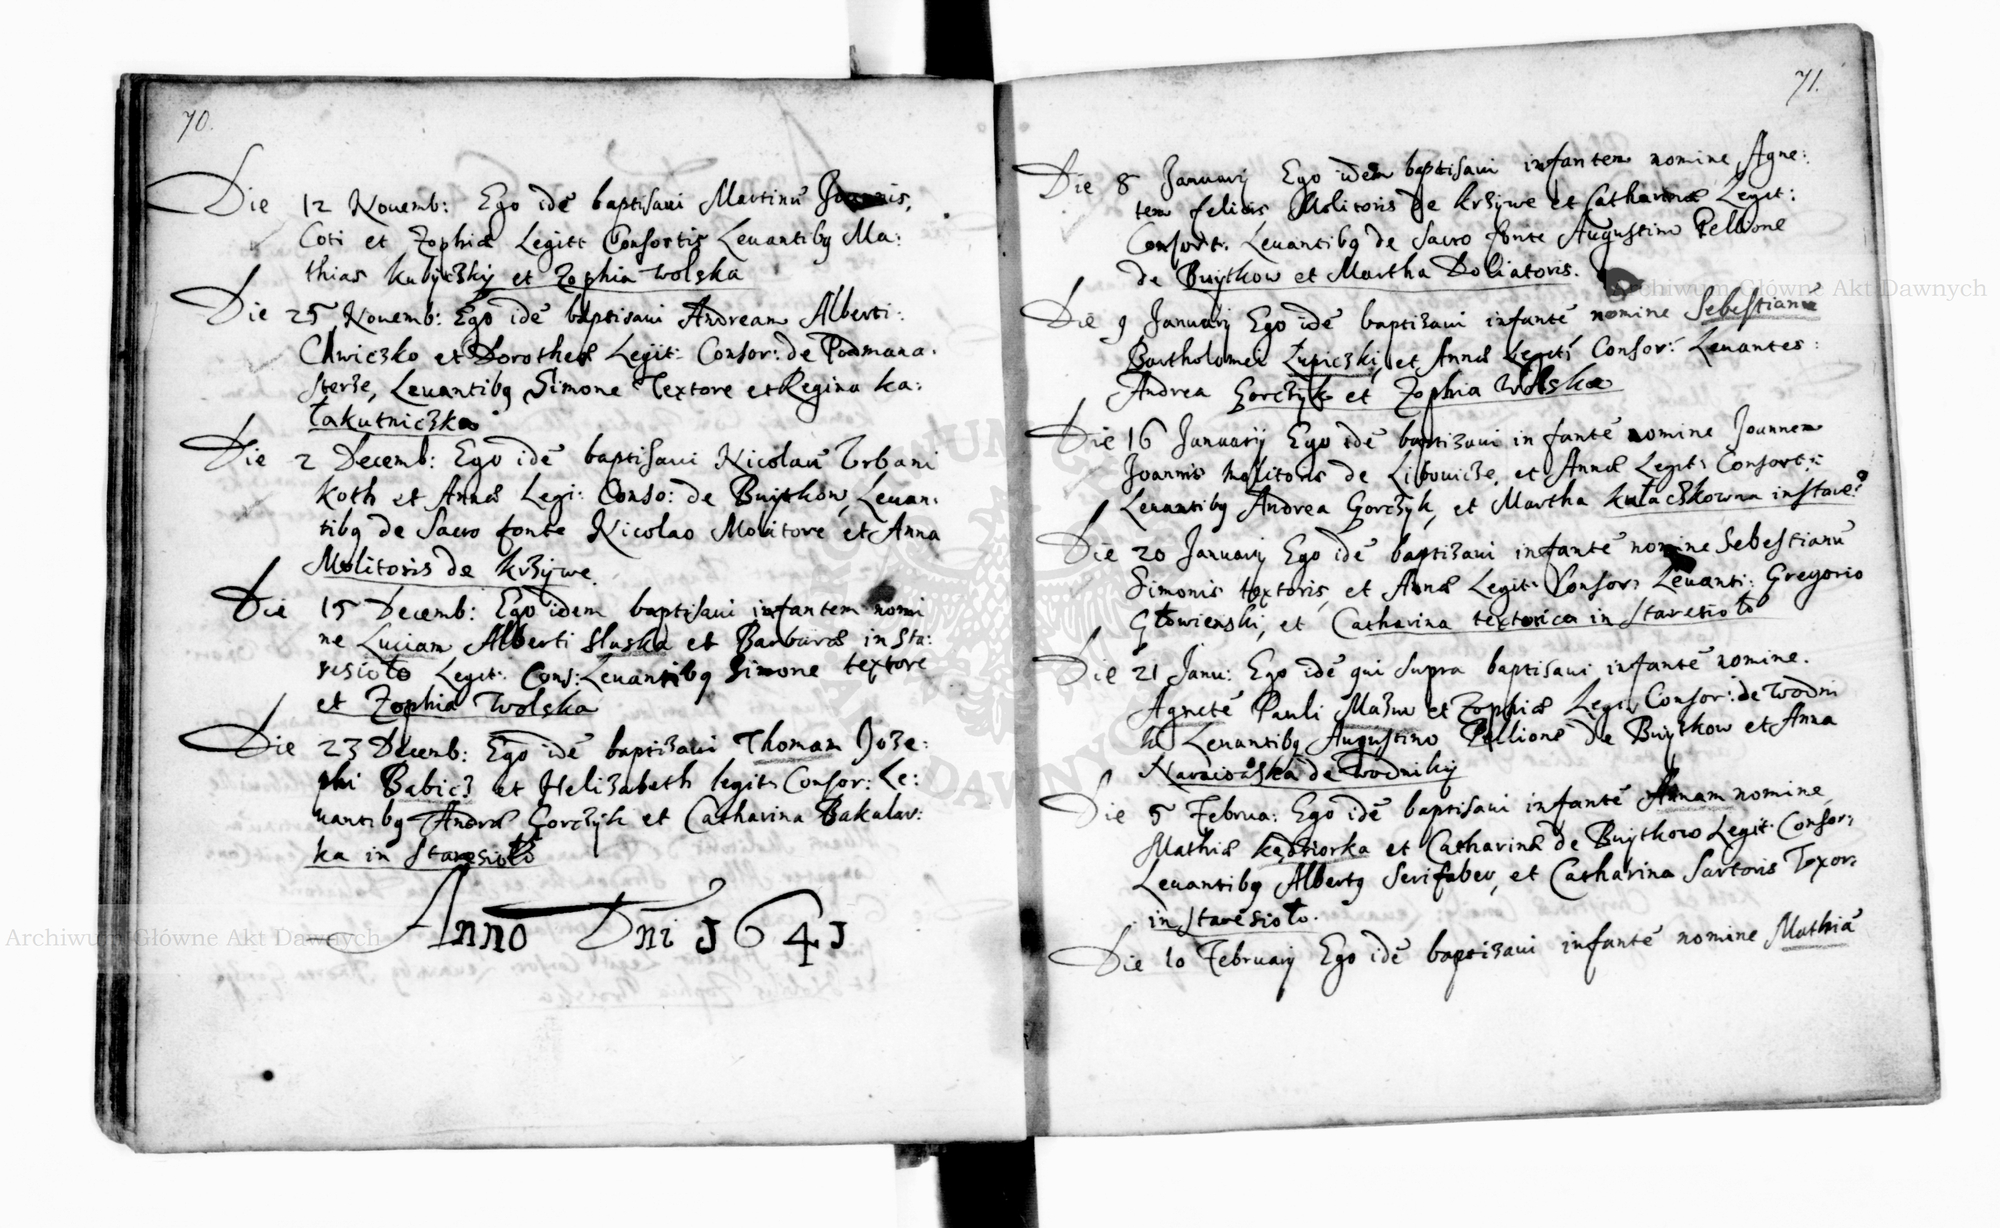 70.
Die 12 Nouemb: Ego idē baptisaui Martinū Joannis,
Coti et Zophiæ Legitt Consortis Leuantibq Ma:
thias Kubyczkÿ et Zophia Wolska
Die 25 Nouemb: Ego idē baptisaui Andream Alberti:
Chwiczko et Dorotheæ Legit: Consor: de Podmana.
sterze, Leuantibq Simone Textore et Regina Ka:
łakutniczka
Die 2 Decemb: Ego idē baptisaui Nicolaū Vrbani
Koth et Annæ Legi: Conso: de Buÿtkow, Leuan:
tibq de Sacro fonte Nicolao Molitore et Anna
Molitoris de Krzÿwe.
Die 15 Decemb: Ego idem baptisaui infantem nomi
ne Luciam Alberti Sluska et Barbaræ in Sta:
resioło Legit: Cons: Leuantibq Simone textore
et Zophia Wolska
Die 23 Decemb: Ego idē baptizaui Thomam Joze:
phi Babicz et Helizabeth legit: Consor: Le:
uantibq Andræ Gorczÿk et Catharina Bakalar:
ka in Staresioło
Anno Dni 1641
71.
Die 8 Januarÿ Ego idem baptisaui infantem nomine Agne:
tem felicis Molitoris de Krzÿwe et Catharinæ Legit:
Consort: Leuantibq de Sacro fonte Augustino Pellione
de Buÿtkow et Martha Doliatoris.
Die 9 Januarÿ Ego idē baptizaui infantē nomine Sebestianū
Bartholomei Łupiczki, et Annæ Legit: Consor: Leuantes:
Andrea Gorczÿk et Zophia Wolska
Die 16 Januarÿ Ego idē baptizaui infantē nomine Joannem
Joannis Molitoris de Libouicze, et Annæ Legit: Consort:
Leuantibq Andrea Gorczÿk, et Martha Kułaczkowna in Stare:
Die 20 Januarÿ Ego idē baptizaui infantē nomine Sebestianū
Simonis textoris, et Annæ Legit: Consor: Leuanti: Gregorio
Głowienski, et Catharina textorica in Staresioło
Die 21 Janu: Ego idē qui supra baptisaui infantē nomine.
Agnetē Pauli Mazur et Zophiæ Legi: Consor: de Wodni
ki Leuantibq Augustino Pellione de Buÿtkow et Anna
de Wodnikÿ
Die 5 Februa: Ego idē baptisaui infantē Annam nomine,
Mathiæ Kędziorka et Catharinæ de Buÿtkow Legit: Consor:
Leuantibq Albertq Serifaber, et Catharina Sartoris Texor:
in Staresioło.
Die 10 Februarÿ Ego idē baptizaui infantē nomine Mathiā
Archiwum Główne Akt Dawnych
Archiwum Główne Akt Dawnych